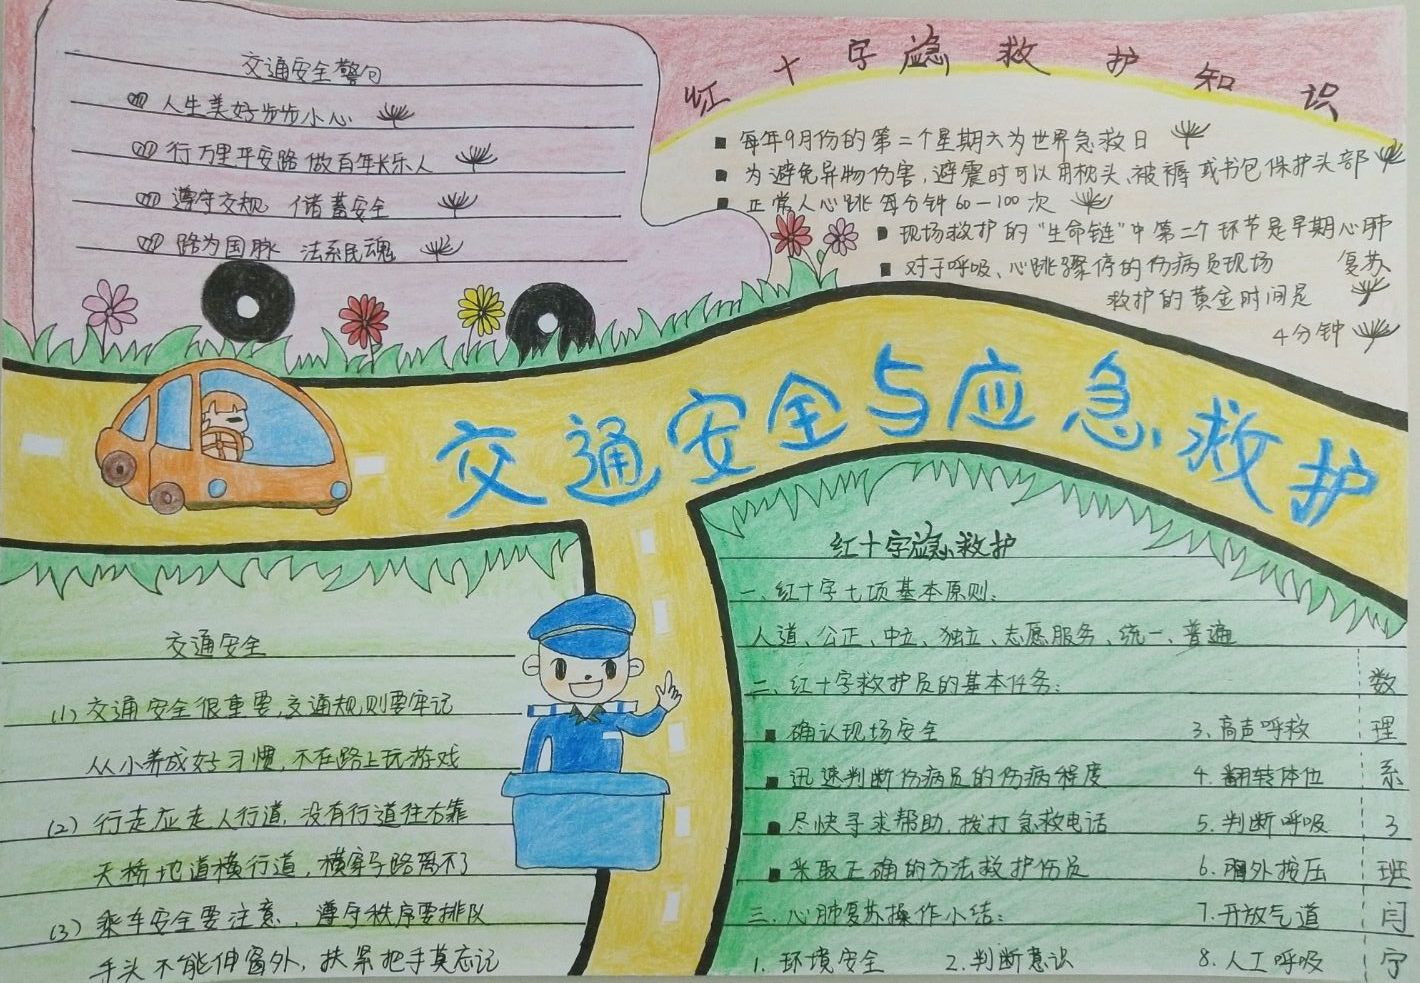 交通安全警句
人生美好步步小心
行万里平安路做百年长乐人
遵守交规 储蓄安全
路为国脉 法系民魂
红十字应急救护知识
每年9月份的第二个星期六为世界急救日
为避免异物伤害,避震时可以用枕头、被褥或书包保护头部
正常人心跳每分钟60—100次
现场救护的“生命链”中第二个环节是早期心肺
复苏
对于呼吸、心跳骤停的伤病员现场
救护的黄金时间是
4分钟
交通安全与应急救护
交通安全
(1)交通安全很重要,交通规则要牢记
从小养成好习惯,不在路上玩游戏
(2)行走应走人行道,没有行道往右靠
天桥地道横行道,横穿马路离不了
(3)乘车安全要注意,遵守秩序要排队
手头不能伸窗外,扶紧把手莫忘记
红十字应急救护
一、红十字七项基本原则:
人道、公正、中立、独立、志愿服务、统一、普遍
二、红十字救护员的基本任务:
确认现场安全
迅速判断伤病员的伤病程度
尽快寻求帮助,拨打急救电话
采取正确的方法救护伤员
三、心肺复苏操作小结:
1.环境安全 2.判断意识
3.高声呼救
4.翻转体位
5.判断呼吸
6.胸外按压
7.开放气道
8.人工呼吸
数理系3班闫宁